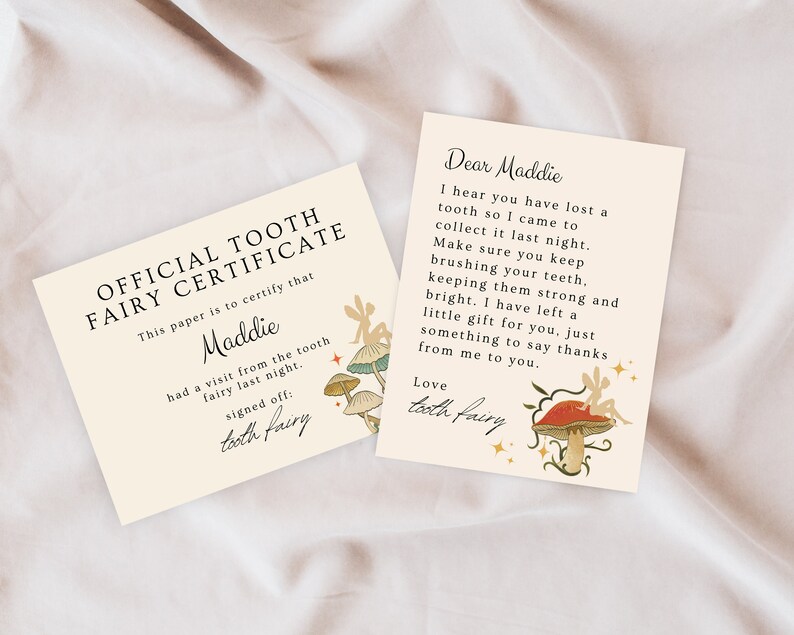 OFFICIAL TOOTH
FAIRY CERTIFICATE
This paper is to certify that
Maddie
had a visit from the tooth
fairy last night.
signed off:
tooth fairy
Dear Maddie
I hear you have lost a
tooth so I came to
collect it last night.
Make sure you keep
brushing your teeth,
keeping them strong and
bright. I have left a
little gift for you, just
something to say thanks
from me to you.
Love
tooth fairy